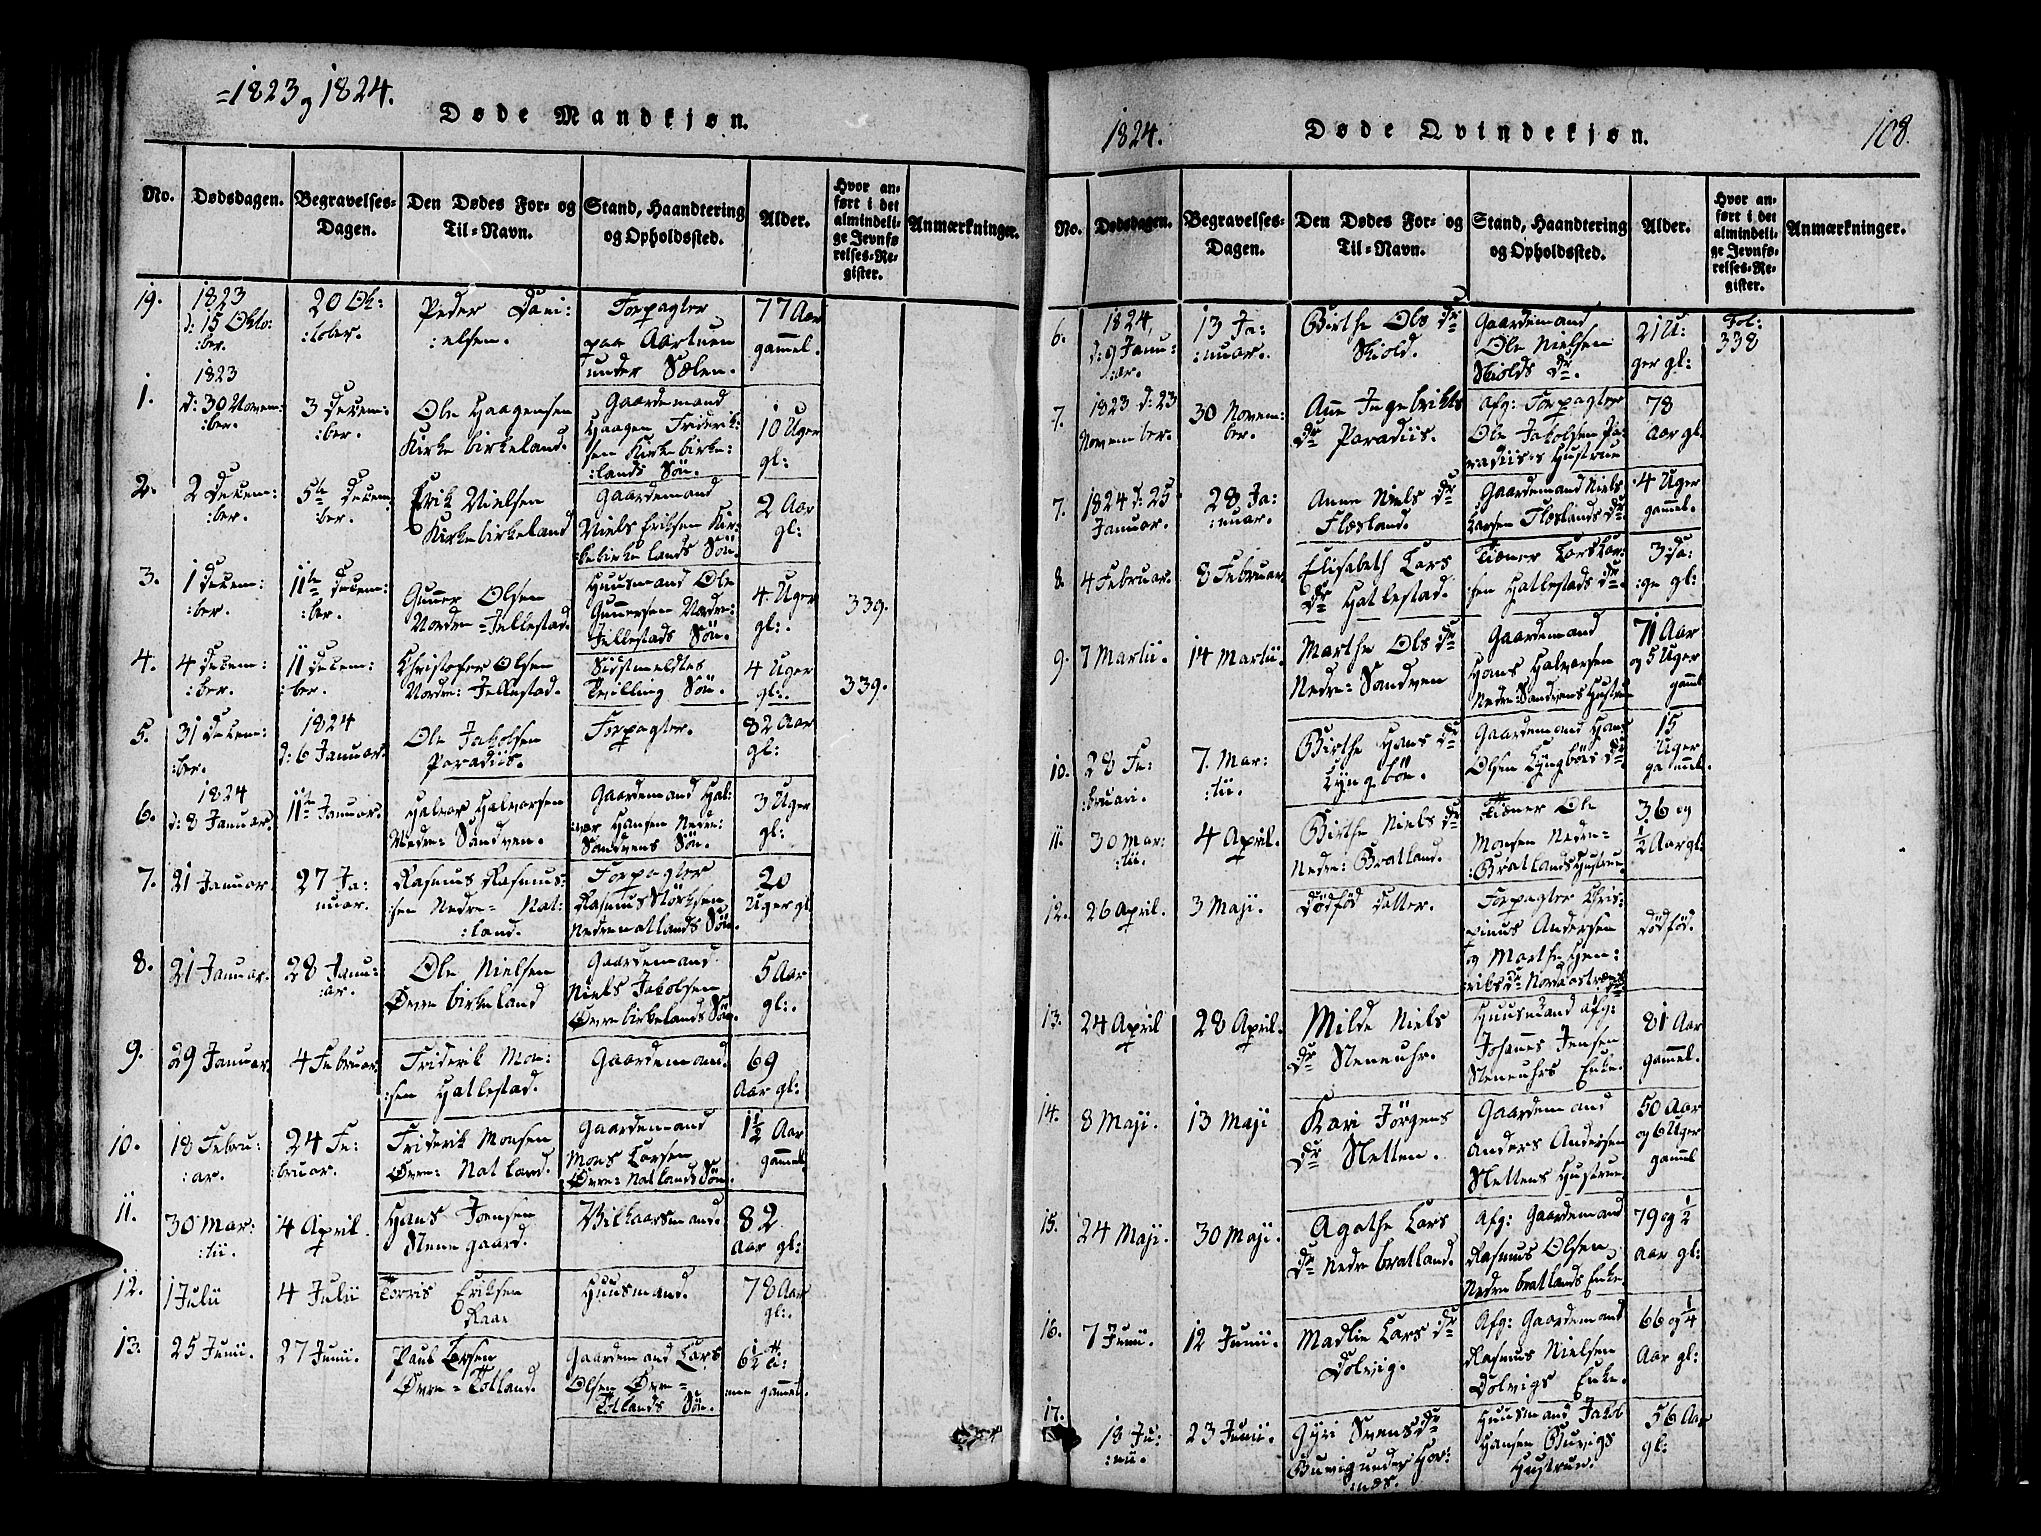 =1823 og 1824.
Døde Mandkjøn.
No.
Dødsdagen.
Begravelses-
Dagen.
Den Dødes For- og
Til-Navn.
Stand, Haandtering
og Opholdssted.
Alder.
Hvor an-
ført i det
almindeli-
ge Jevnfø
relses-Re-
gister.
Anmærkninger.
19.
1823
d: 15 Okto:
ber.
20 Ok:
:tober.
Peder Dani:
:elsen.
Forpagter
paa Aartuen
under Sælen.
77 Aar
gammel.
1.
1823
d: 30 Novem:
:ber.
3 Decem:
:ber.
Ole Haagensen
Kirkebirkeland.
Gaardemand
Haagen Friderik:
sen Kirkebirke:
:lands Søn.
10 Uger
gl:
2.
2 Decem:
:ber.
5te Decem:
:ber.
Erik Nielsen
Kirkebirkeland
Gaardemand
Niels Eriksen Kir:
:kebirkelands Søn.
2 Aar
gl:
3.
1 Decem:
:ber.
11te Decem:
:ber.
Gunner Olsen
Nordre=Jellestad.
Huusmand Ole
Gunnersen Nordre:
Jellestads Søn.
4 Uger
gl:.
339.
4.
4 Decem:
:ber.
11 Decem:
:ber.
Christofer Olsen
Nordre: Jellestad.
Sidstmeldtes
Tvilling Søn.
4 Uger
gl:.
339.
5.
31 Decem:
:ber.
1824
d: 6 Januar.
Ole Jakobsen
Paradiis.
Forpagter.
82 Aar
gl:
6.
1824
d: 8 Januar.
11te Januar.
Halvor Halvorsen
Nedre: Sandven.
Gaardemand Hal:
:vor Hansen Nedre:
Sandvens Søn.
3 Uger
gl:
7.
21 Januar
27 Ja:
nuar.
Rasmus Rasmus:
:sen Nedre= Nat:
:land.
Forpagter
Rasmus Størksen
Nedrenatlands Søn.
20
Uger gl
8.
21 Januar.
28 Janu:
:ar.
Ole Nielsen
Øvrebirkeland
Gaardemand
Niels Jakobsen
Øvrebirkelands Søn.
5 Aar
gl:.
9.
29 Januar
4 Februar.
Friderik Mon:
:sen Hatlestad.
Gaardemand.
69
Aar gl:
10.
18 Febru:
:ar.
24 Fe:
:bruar.
Friderik Monsen
Øvre: Natland.
Gaardemand
Mons Larsen
Øvre: Natlands Søn.
1½ Aar
gammel
11.
30 Mar:
:tii.
4 April.
Hans Joensen
Stenegaard.
Vilkaarsmand.
82
Aar gl:
12.
1 Julii
4 Julii
Torris Eriksen
Raae
Huusmand.
78 Aar
gl:.
13.
25 Junii.
27 Junii.
Paul Larsen
Øvre=Totland.
Gaardemand Lars
Olsen Øvre=
Totlands Søn.
6½ Ti:
mer gammel.
1824.
Døde Qvindekjøn.
108.
No.
Dødsdagen.
Begravelses-
Dagen.
Den Dødes For- og
Til-Navn.
Stand, Haandtering
og Opholdssted.
Alder.
Hvor an-
ført i det
almindeli-
ge Jevnfø-
relses-Re-
gister.
Anmærkninger.
6.
1824,
d: 9 Janu:
:ar.
13 Ja:
:nuar.
Birthe Ols Dr
Skiold.
Gaardemand
Ole Nielsen
Skiolds Dr.
21 U:
ger gl:
Fol:
338
7.
1823 d: 23
November.
30 Novem:
ber.
Ane Ingebrikts
Dr Paradiis.
Afg: Forpagter
Ole Jakobsen Pa:
radiis's Hustrue
78
Aar gl.
7.
1824 d: 25
Januar.
28 Ja:
:nuar.
Anne Niels Dr
Flæsland.
Gaardemand Niels
Larsen Flæslands Dr
4 Uger
gammel.
8.
4 Februar.
8 Februar.
Elisabeth Lars
Dr Hatlestad.
Tiener Lars Lar:
:sen Hatlestads Dr.
3 Da:
:ge gl:
9.
7 Martii.
14 Martii.
Marthe Ols Dr
Nedre: Sandven
Gaardemand
Hans Halvorsen
Nedre: Sandvens Hustrue
71 Aar
og 5 Uger
gammel
10.
28 Fe:
:bruari.
7. Mar:
:tii.
Birthe Hans Dr
Lyngbøe.
Gaardemand Hans
Olsen Lyngbøes Dr.
15
Uger
gammel.
11.
30 Mar:
:tii.
4 April.
Birthe Niels Dr
Nedre: Bratland.
Tiener Ole
Monsen Nedre=
:Bratlands Hustrue.
36 og
½ Aar gl:
12.
26 April.
3 Maji.
Dødfød Datter.
Forpagter Chris:
pinus Andersen
og Marthe Hen:
:riks Dr
dødfød.
13.
24 April
28 April.
Milde Niels
Dr Steneuhr.
Huusmand afg:
Johannes Jensen
Steneuhrs Enke.
81 Aar
gammel.
14.
8 Maji.
13 Maji
Kari Jørgens
Dr Sletten.
Gaardemand
Anders Andersen
Slettens Hustrue.
50 Aar
og 6 Uger
gammel
15.
24 Maji.
30 Maji.
Agathe Lars
Dr Nedrebratland.
Afg: Gaardemand
Rasmus Olsen
Nedrebratlands Enke.
79 og ½
Aar gl:
16.
7 Junii.
12 Junii.
Madlie Lars Dr
Dolvig.
Afg: Gaardemand
Rasmus Nielsen
Dolvigs Enke.
66 og ¼
Aar gl:
17.
18 Ju:
:nii.
23 Junii.
Gyri Svens Dr
Buvig under Hor:
:nds.
Huusmand Jakob
Hansen Buvigs
Hustrue.
56 Aar
gl: